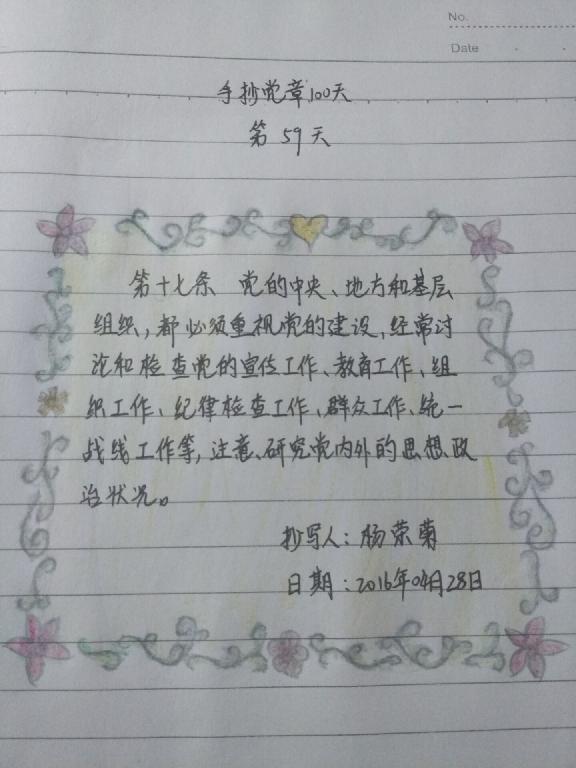 No.
Date
手抄党章100天
第59天
第十七条 党的中央、地方和基层
组织，都必须重视党的建设，经常讨
论和检查党的宣传工作、教育工作、组
织工作、纪律检查工作、群众工作、统一
战线工作等，注意、研究党内外的思想政
治状况。
抄写人：杨荣菊
日期：2016年04月28日